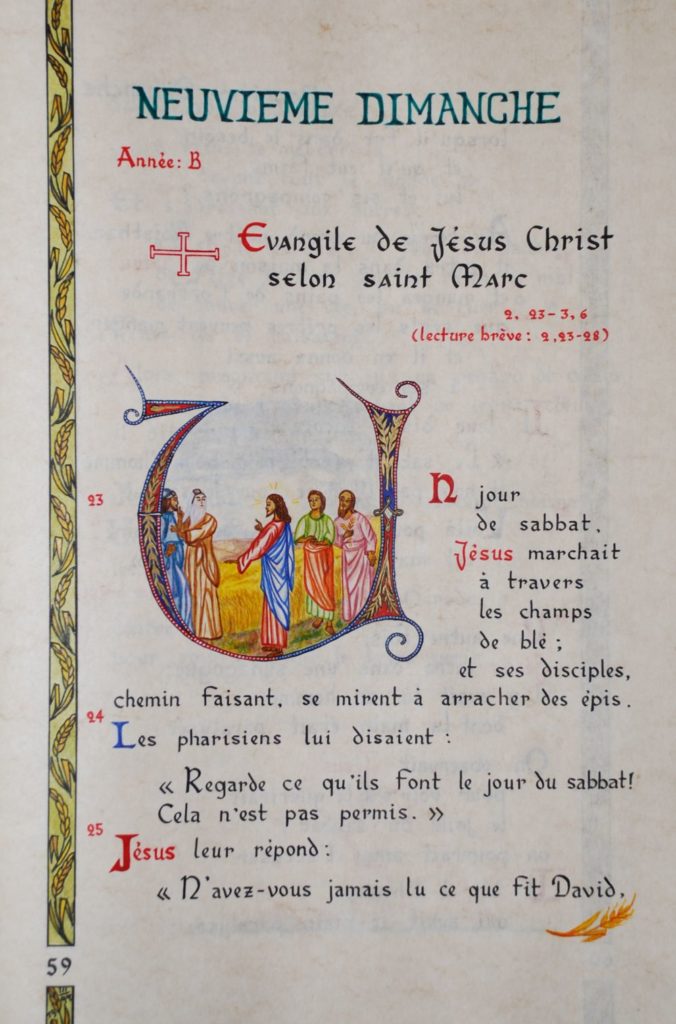 NEUVIEME DIMANCHE
Année: B
Evangile de Jésus Christ
selon saint Marc
2, 23-3,6
(lecture brève: 2,23-28)
23
UN jour
de sabbat,
Jésus marchait
à travers
les champs
de blé ;
et ses disciples,
chemin faisant, se mirent à arracher des épis.
24
Les pharisiens lui disaient :
« Regarde ce qu'ils font le jour du sabbat!
Cela n'est pas permis. »
25
Jésus leur répond :
« N'avez-vous jamais lu ce que fit David,
59